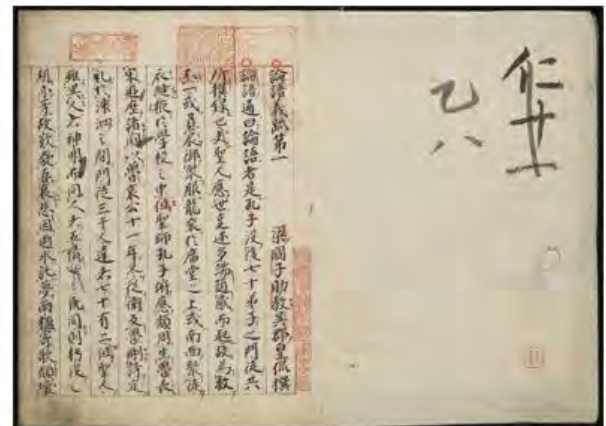 仁廿
乙八
論語義疏第一 梁國子助教吳郡皇侃撰
論語通曰論語者是孔子没後七十弟子之門徒共
所撰録也夫聖人應世事迹多端随感而起故為教
不一或負扆御衆服龍袞於廟堂之上或南面聚徒
衣縫掖於學校之中但聖師孔子符應頽周生魯長
宋遊歴諸國以魯哀公十一年冬從衛反魯刪詩定
礼於洙泗之間門徒三千人達者七十有二但聖人
雖異人者神明而同人者五情〻既同則朽没之
期亦等故歎發吾衰悲因逝水託夢兩楹寄歌頽壞